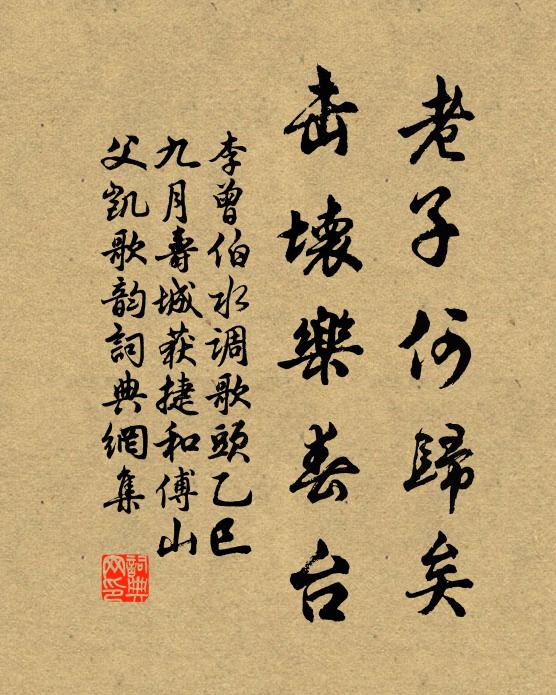 老子何歸矣
击壞樂春台
李曾伯水調歌頭乙巳
九月壽城获捷和傅山
父凯歌韵詞典網集
詞典
网印